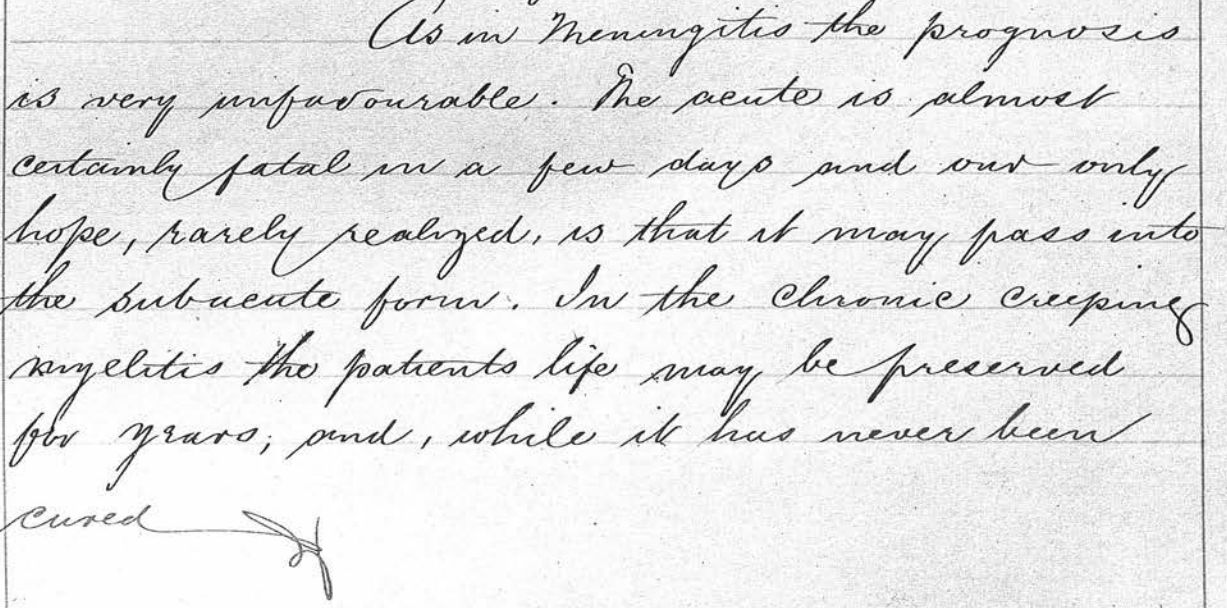 As in Meningitis the prognosis
is very unfavourable. The acute is almost
certainly fatal in a few days and our only
hope, rarely realized, is that it may pass into
the subacute form. In the chronic creeping
myelitis the patients life may be preserved
for years, and, while it has never been
cured